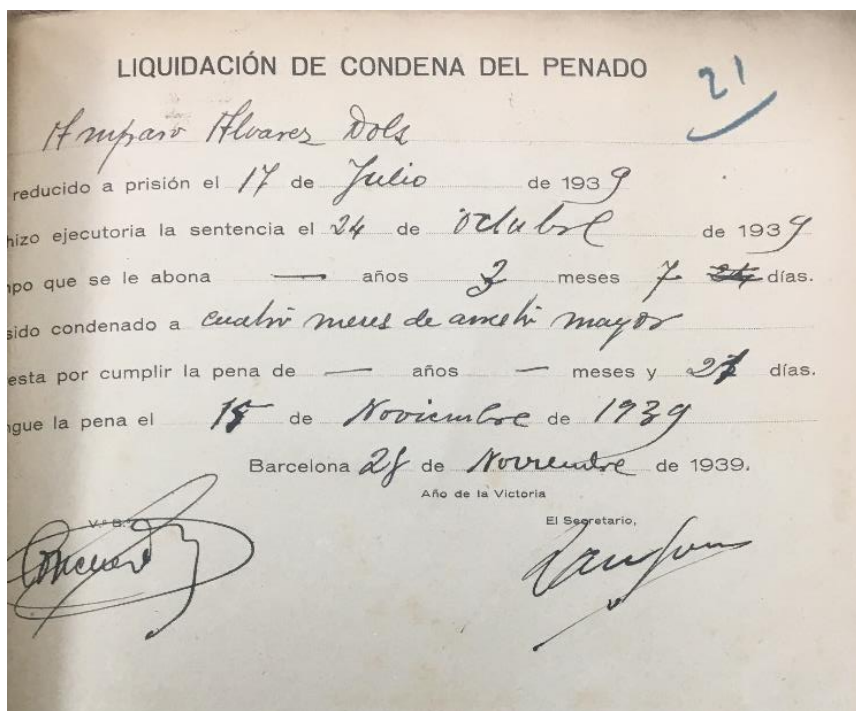 LIQUIDACIÓN DE CONDENA DEL PENADO
21
Amparo Alvarez Dols
reducido a prisión el 17 de Julio de 1939
hizo ejecutoria la sentencia el 24 de octubre de 1939
mpo que se le abona — años 3 meses 7 días.
sido condenado a cuatro meses de arresto mayor
esta por cumplir la pena de — años — meses y 23 días.
ngue la pena el 15 de Noviembre de 1939
Barcelona 28 de Noviembre de 1939.
Año de la Victoria
V.º B.º
El Secretario,